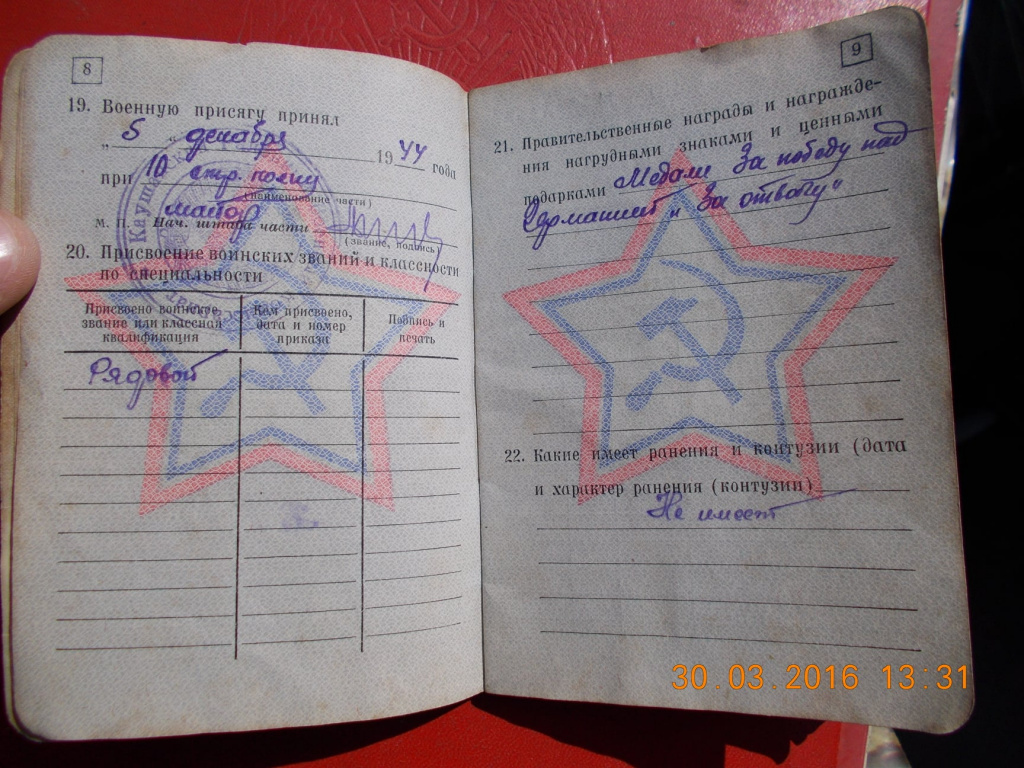 8
19. Военную присягу принял
„ 5 „ декабря 1944 года
при 10 стр. полку
(наименование части)
майор
М. П. Нач. штаба части
(звание, подпись)
20. Присвоение воинских званий и классности
по специальности
Присвоено воинское звание или классная квалификация
Кем присвоено, дата и номер приказа
Подпись и печать
Рядовой
9
21. Правительственные награды и награжде-
ния нагрудными знаками и ценными
подарками Медали „За победу над
Германией" и „За отвагу"
22. Какие имеет ранения и контузии (дата
и характер ранения (контузии)
Не имеет
30.03.2016 13:31